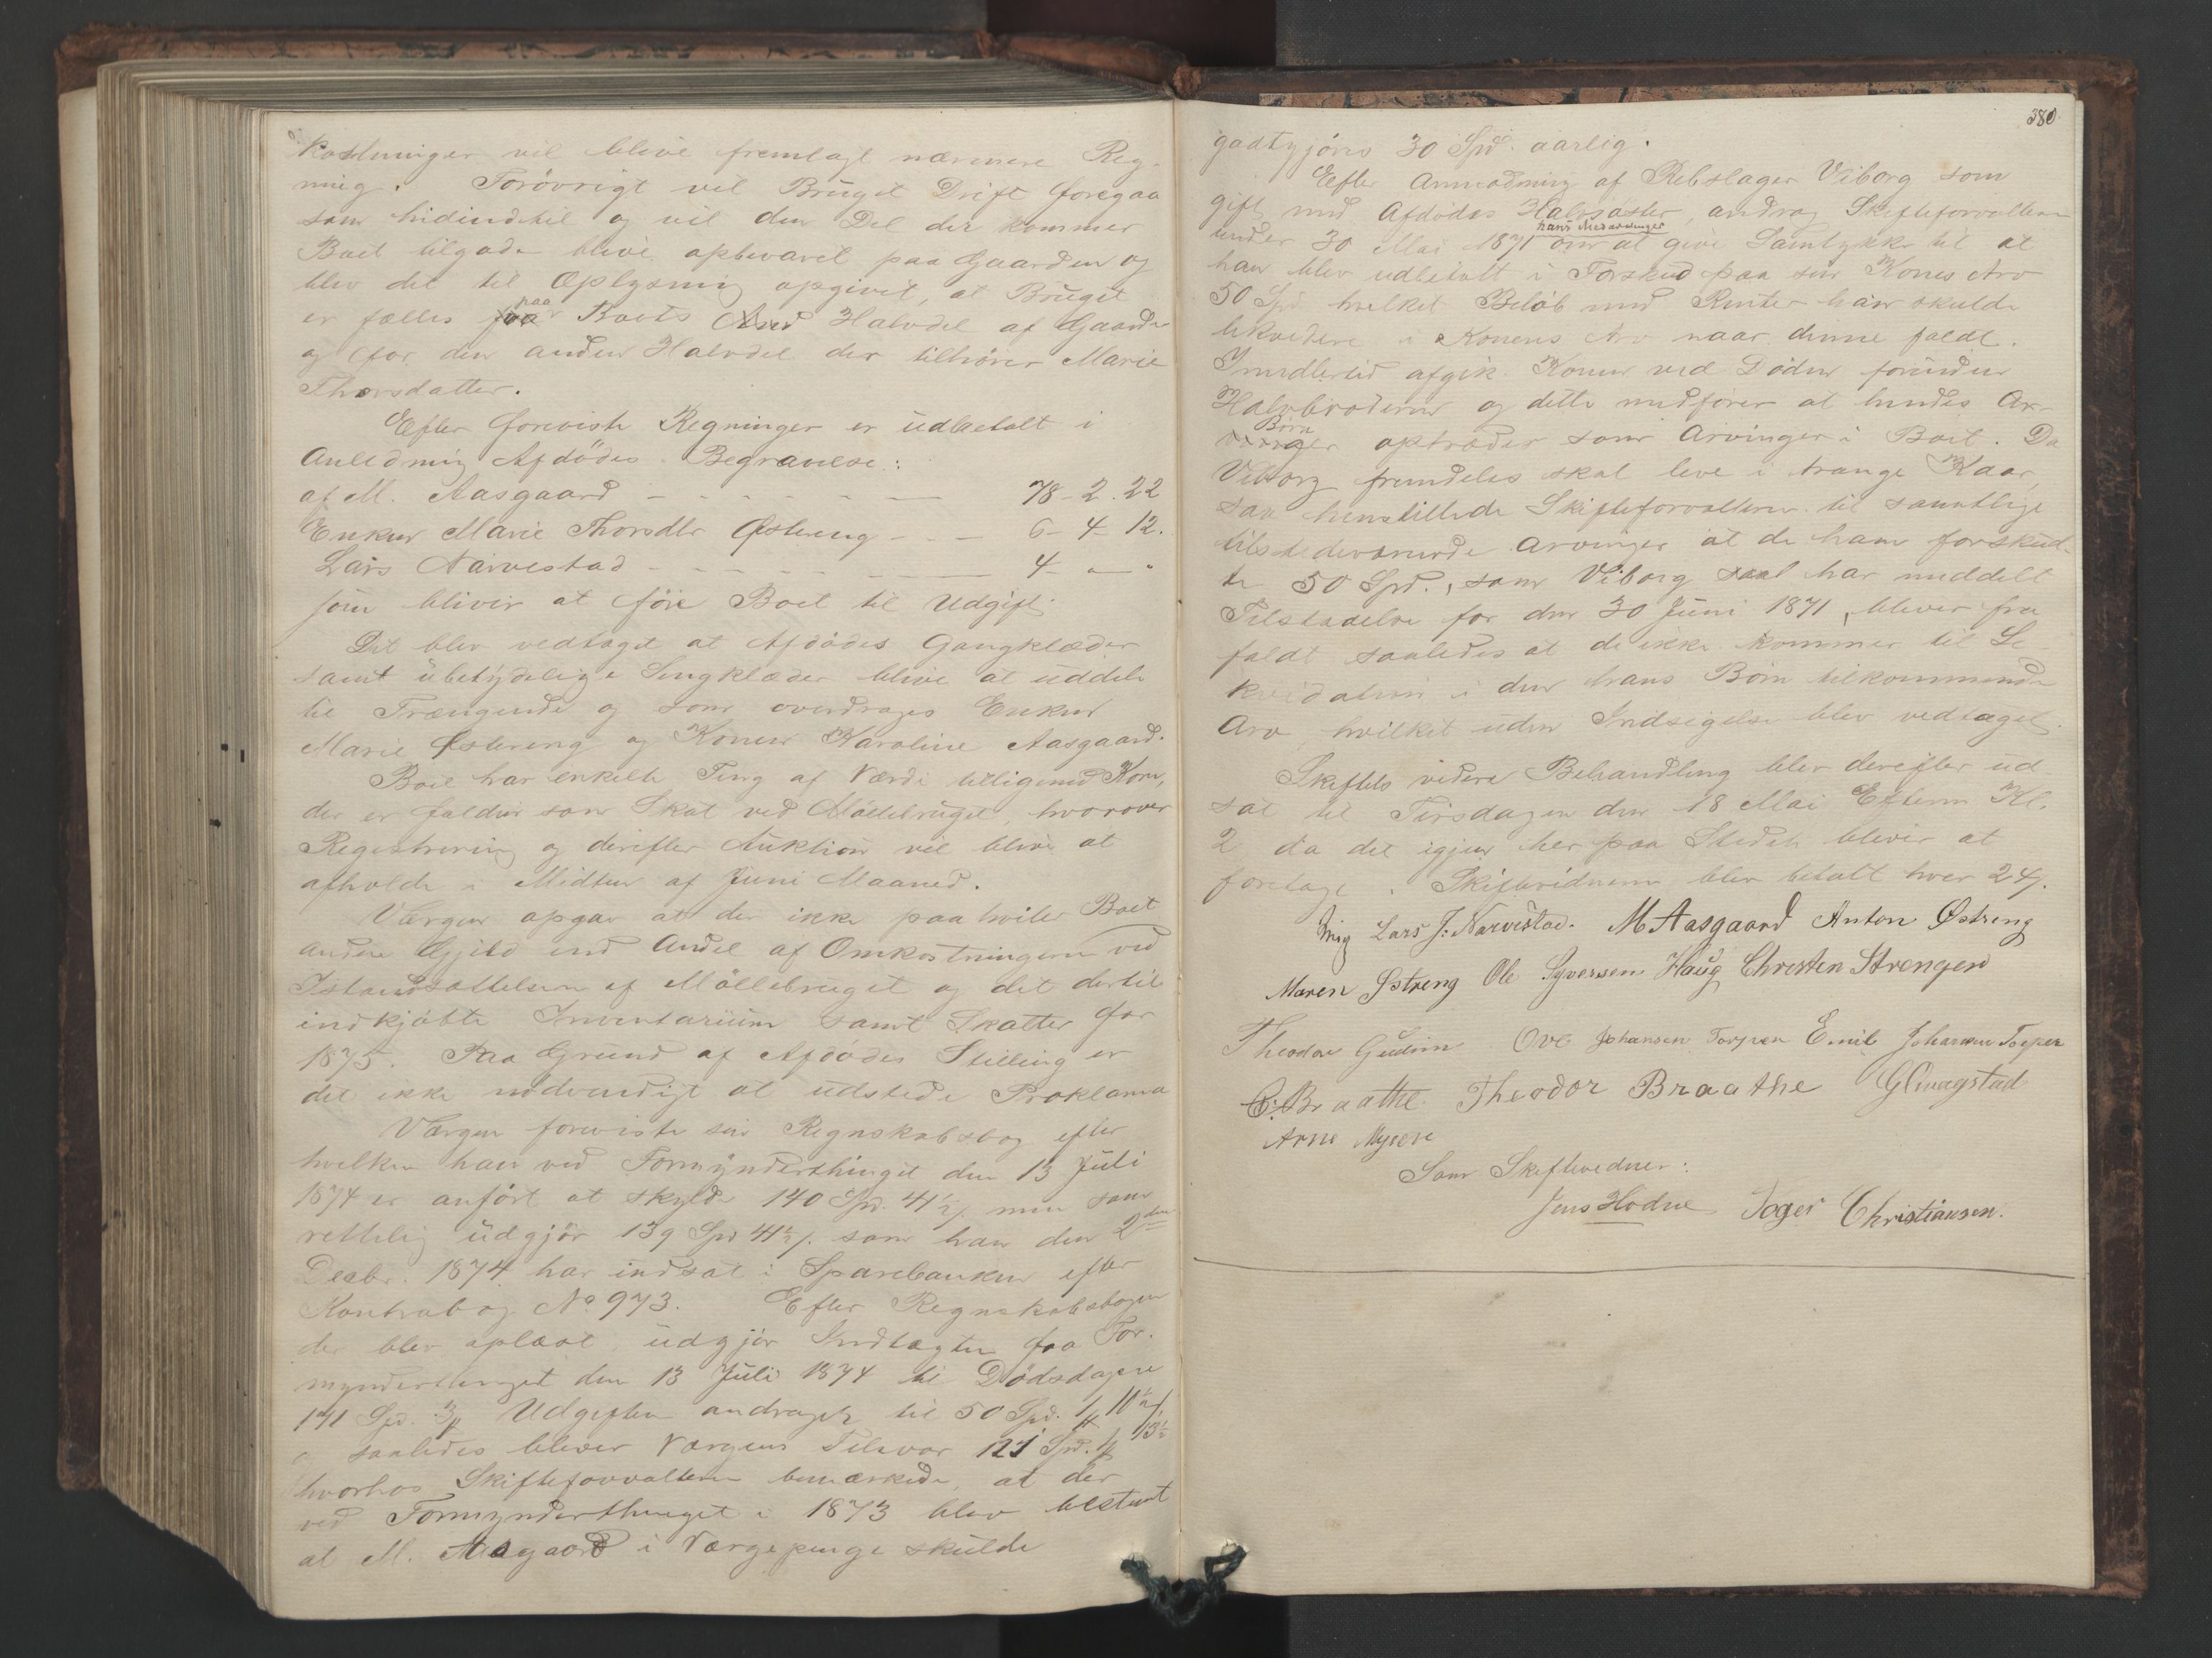 kostninger vil blive fremlagt nærmere Reg-
ning. Forøvrigt vil Bruget Drift foregaa
som hidindtil og vil den Del der kommer
Boet tilgode blive opbevaret paa Gaarden og
blev det til Oplysning opgivet, at Bruget
paa
er fælles for Boets Halvdel af Gaarden
og for den anden Halvdel der tilhører Marie
Thorsdatter.
Efter foreviste Regninger er udbetalt i
Anledning Afdødes Begravelse:
af M. Aasgaard - - - - - - 78 - 2 . 22
Enken Marie Thorsdtr Østereng - - - 6 - 4 - 12.
Lars Narvestad - - - - - - 4 - "
som bliver at føre Boet til Udgift.
Det blev vedtaget at Afdødes Gangklæder
samt ubetydelige Sengklæder blive at uddele
til Trængende og som overdrages Enken
Marie Østereng og Konen Karoline Aasgaard.
Boet har enkelte Ting af Værdi tilligemed Korn,
der er falden som Skat ved Møllebruget, hvorover
Registrering og derefter Auktion vil blive at
afholde i Midten af Juni Maaned.
Værgen opgav at der ikke paahviler Boet
anden Gjæld end Andel af Omkostningerne ved
Istandsættelsen af Møllebruget og det dertil
indkjøbte Inventarium samt Skatter for
1875. Paa Grund af Afdødes Stilling er
det ikke nødvendigt at udstede Proklama
Værgen foreviste sin Regnskabsbog efter
hvilken han ved Formynderthinget den 13 Juli
1874 er anført at skylde 140 Spd. 41½ /. men som
rettelig udgjør 139 Spd 41½ /. som han den 2den
Decbr. 1874 har indsat i Sparebanken efter
Kontrabog No 973. Efter Regnskabsbogen
der blev oplæst, udgjør Indtægten fra For-
mynderthinget den 13 Juli 1874 til Dødsdagen
171 Spd. Udgiften andraget til 50 Spd.
og saaledes bliver Værgens Tilsvar 121 Spd.
hvorhos Skifteforvalteren bemærkede, at der
ved Formynderthinget i 1873 blev bestemt
at M. Aasgaard i Værgepenge skulde
380
godtgjøres 30 Spd. aarlig.
Efter Anmodning af Rebslager Viborg som
gift med Afdødes Halvsøster, androg Skifteforvalteren
hans Medarvinger
under 30 Mai 1871 om at give Samtykke til at
han blev udbetalt i Forskud paa sin Kones Arv
50 Spd hvilket Beløb med Renter han skulde
likvidere i Konens Arv naar denne faldt.
Imidlertid afgik Konen ved Døden forinden
Halvbroderen og dette medfører at hendes Ar-
Børn
vinger optræder som Arvinger i Boet. Da
Viborg fremdeles skal leve i trange Kaar,
saa henstillede Skifteforvalteren til samtlige
tilstedeværende Arvinger at de ham forskud-
te 50 Spd., som Viborg har meddelt
Tilstaaelse for den 30 Juni 1871, bliver fra
faldt saaledes at de ikke kommer til Li-
kvidation i den hans Børn tilkommende
Arv, hvilket uden Indsigelse blev vedtaget.
Skiftets videre Behandling blev derefter ud
sat til Tirsdagen den 18 Mai Efterm Kl.
2 da det igjen her paa Stedet bliver at
foretage. Skiftevidnerne blev betalt hver 24 /.
Lars J: Narvestad. M Aasgaard Anton Østreng
Maren Østreng Ole Syversen Haug Christen Strengen
Theodor Gudim Ove Johansen Torper Emil Johansen Torper
C. Braathe. Theodor Braathe
Arne Mysen
Som Skiftevidner:
Jens Hodne Christiansen.